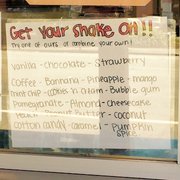 Get Your Shake On!!
Try one of ours or combine your own!
Vanilla - chocolate - Strawberry
Coffee - Bannana - Pineapple - mango
mint chip - cookies n cream - Bubble gum
Pomegranate - Almond - Cheesecake
Peach - Peanut Butter - coconut
Cotton candy - caramel - Pumpkin
Spice